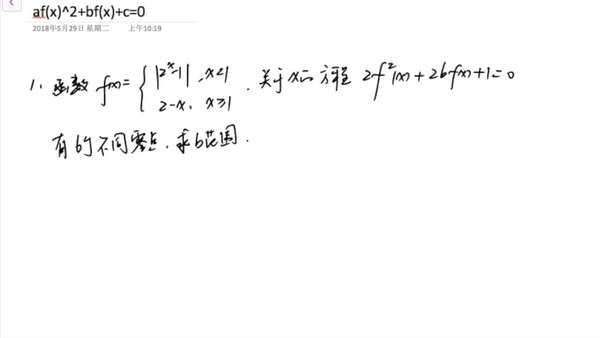 af(x)^2+bf(x)+c=0
2018年5月29日 星期二 上午10:19
1. 函数 f(x)= { |2^x-1|, x<1
2-x, x≥1 . 关于x的方程 2f²(x)+2bf(x)+1=0
有6个不同零点. 求b范围.